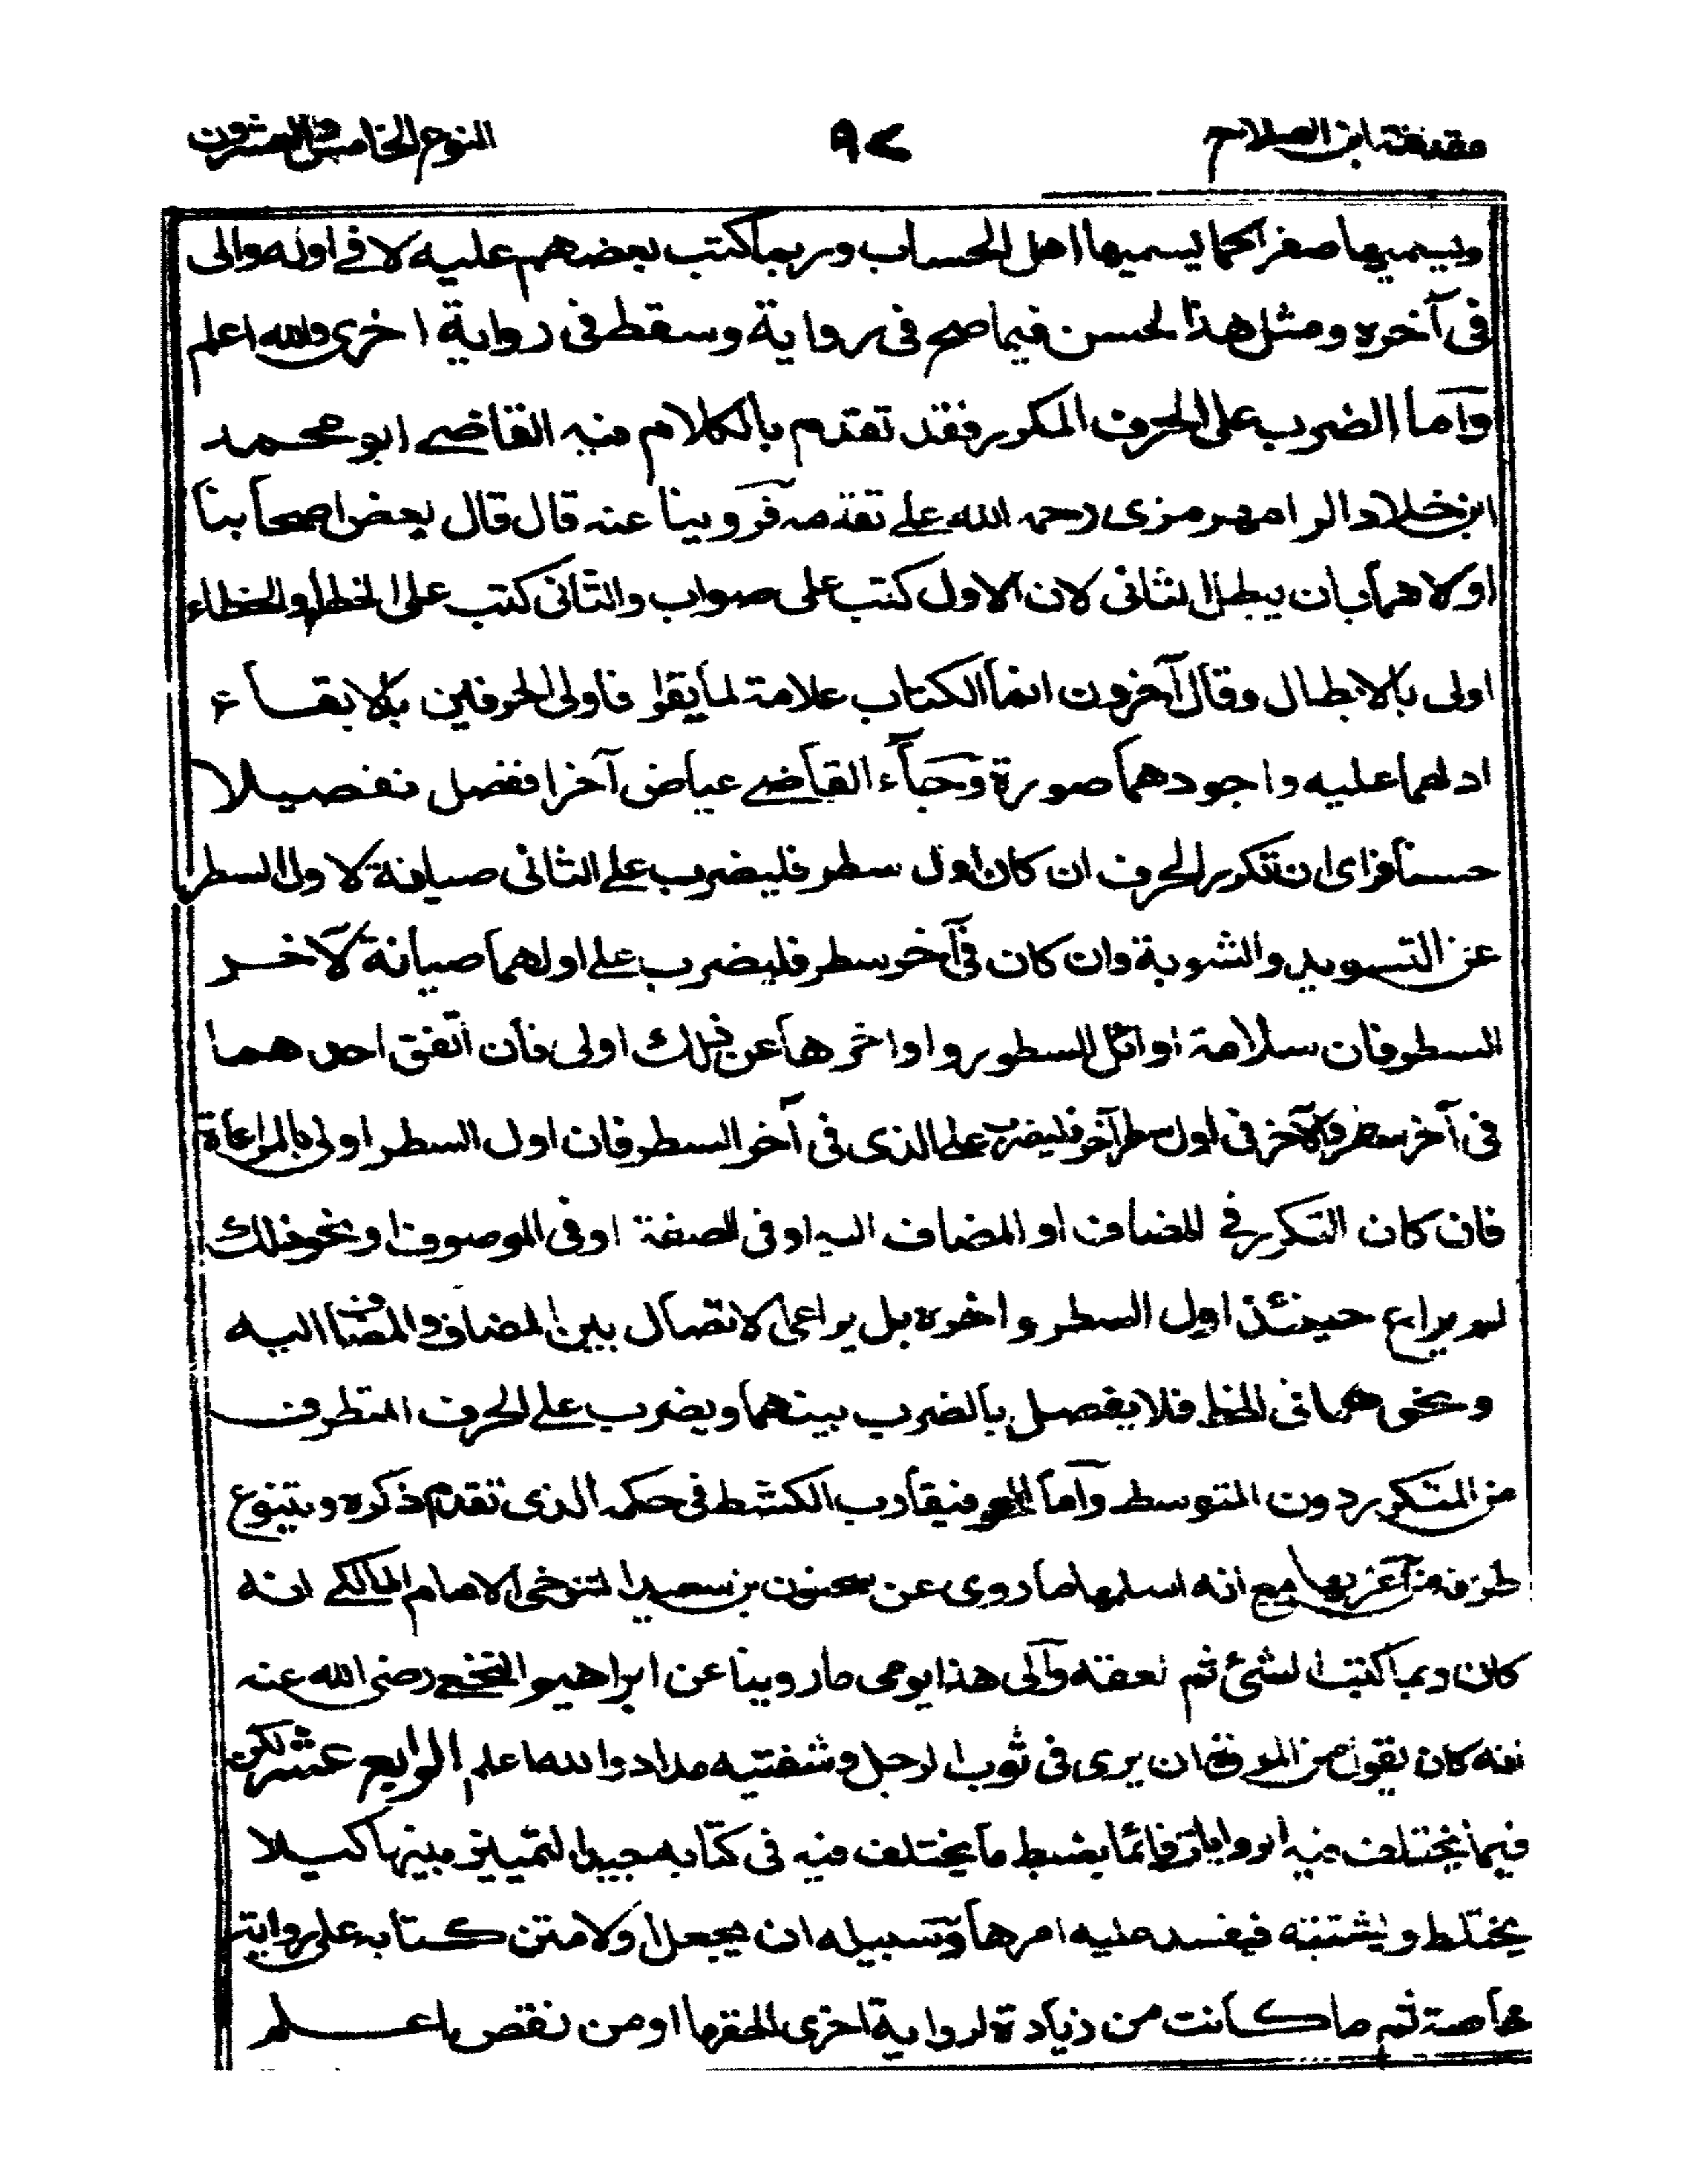 مقدمة ابن الصلاح ٩٧ النوع الخامس والعشرون
ويسميها صفرا كما يسميها اهل الحساب وربما كتب بعضهم عليه لا في اوله والى
فى آخره ومثل هذا لحسن فيما صح فى رواية وسقط فى رواية اخرى والله اعلم
وآما الضرب على الحرف المكرر فقد تقدم بالكلام فيه القاضے ابو محمد
ابن خلاد الرامهرمزى رحمه الله علے تقدمه فروينا عنه قال قال بعض اصحابنا
اولاهما بان يبطل الثانى لان الاول كتب على صواب والثانى كتب على الخطا والخطاء
اولى بالابطال وقال آخرون انما الكتاب علامة لما يقرا فاولى الحرفين بالابقاء
ادلهما عليه واجودهما صورة وجاء القاضے عياض آخرا ففصل تفصيلا
حسنا فراى ان تكرر الحرف ان كان اول سطر فليضرب علے الثانى صيانة لاول السطر
عن التسويد والتشويه وان كان فى آخر سطر فليضرب علے اولهما صيانة لآخر
السطر فان سلامة اوائل السطور واواخرها عن ذلك اولى فان اتفق احدهما
فى آخر سطر والآخر فى اول سطر آخر فليضرب علے الذى فى آخر السطر فان اول السطر اولى بالمراعاة
فان كان التكرر فے المضاف او المضاف اليه او فى الصفة او فى الموصوف او نحو ذلك
لم يراع حينئذ اول السطر واخره بل يراعى الاتصال بين المضاف والمضاف اليه
ونحوهما فى الخط فلا يفصل بالضرب بينهما ويضرب علے الحرف المتطرف
من المتكرر دون المتوسط وآما المحو فيقارب الكشط فى حكمه الذى تقدم ذكره ويتنوع
طرقه ومن آغربها مع انه اسلمها ما روى عن سحنون بن سعيد التنوخى الامام المالكے انه
كان ربما كتب الشئ ثم لعقه وآلى هذا يومى ما روينا عن ابراهيم النخعے رضى الله عنه
انه كان يقول من المروة ان يرى فى ثوب الرجل وشفتيه مداد والله اعلم الرابع عشر ليكن
فيما يختلف فيه الروايات قائما بضبط ما يختلف فيه فى كتابه جيد التمييز بينها كيلا
يختلط ويشتبه فيفسد عليه امرها وسبيله ان يجعل اولا متن كتابه على رواية
خاصة ثم ما كانت من زيادة لرواية اخرى الحقها او من نقص اعلم